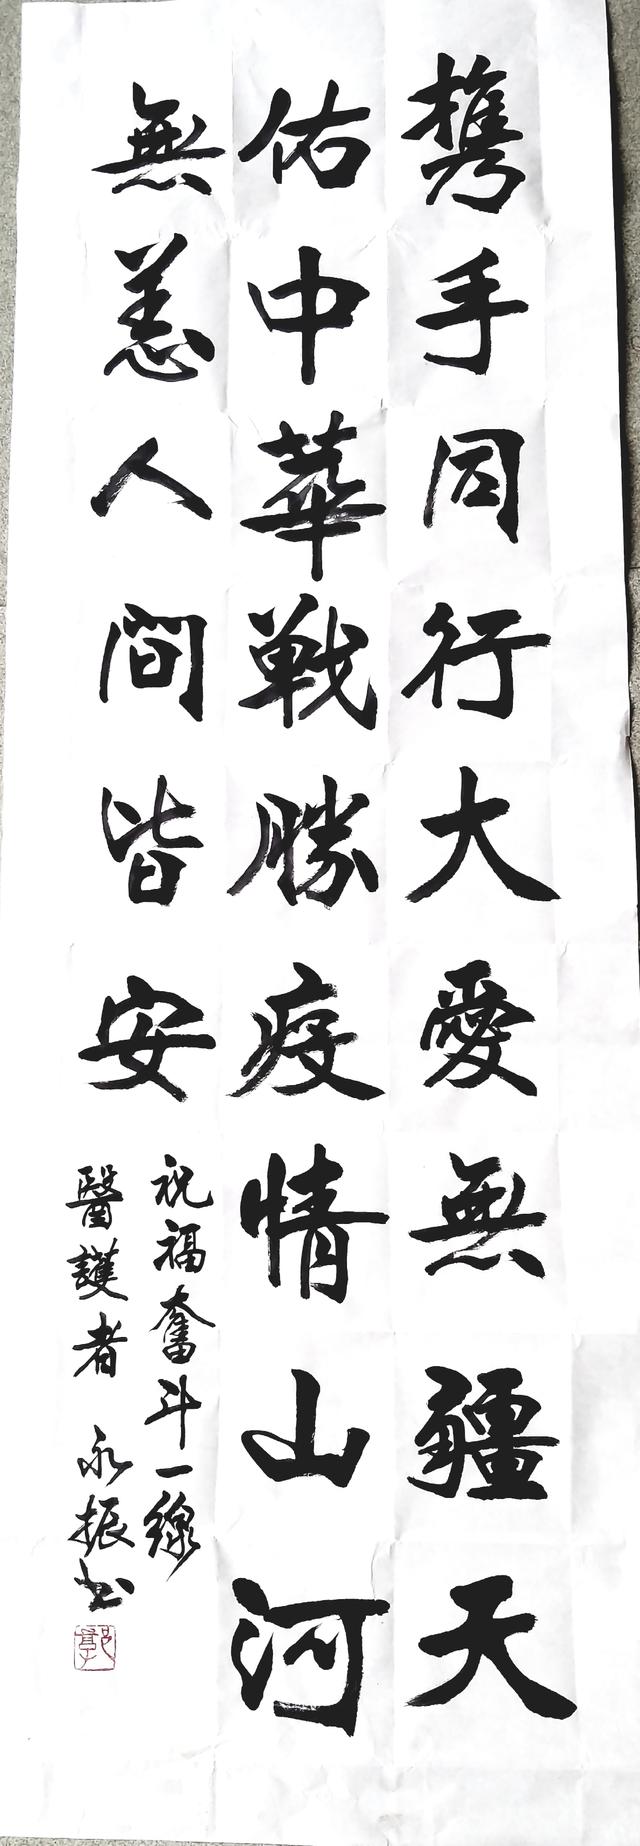 携手同行大愛無疆天
佑中華戰勝疫情山河
無恙人間皆安
祝福奮斗一線
醫護者 永振书
郭